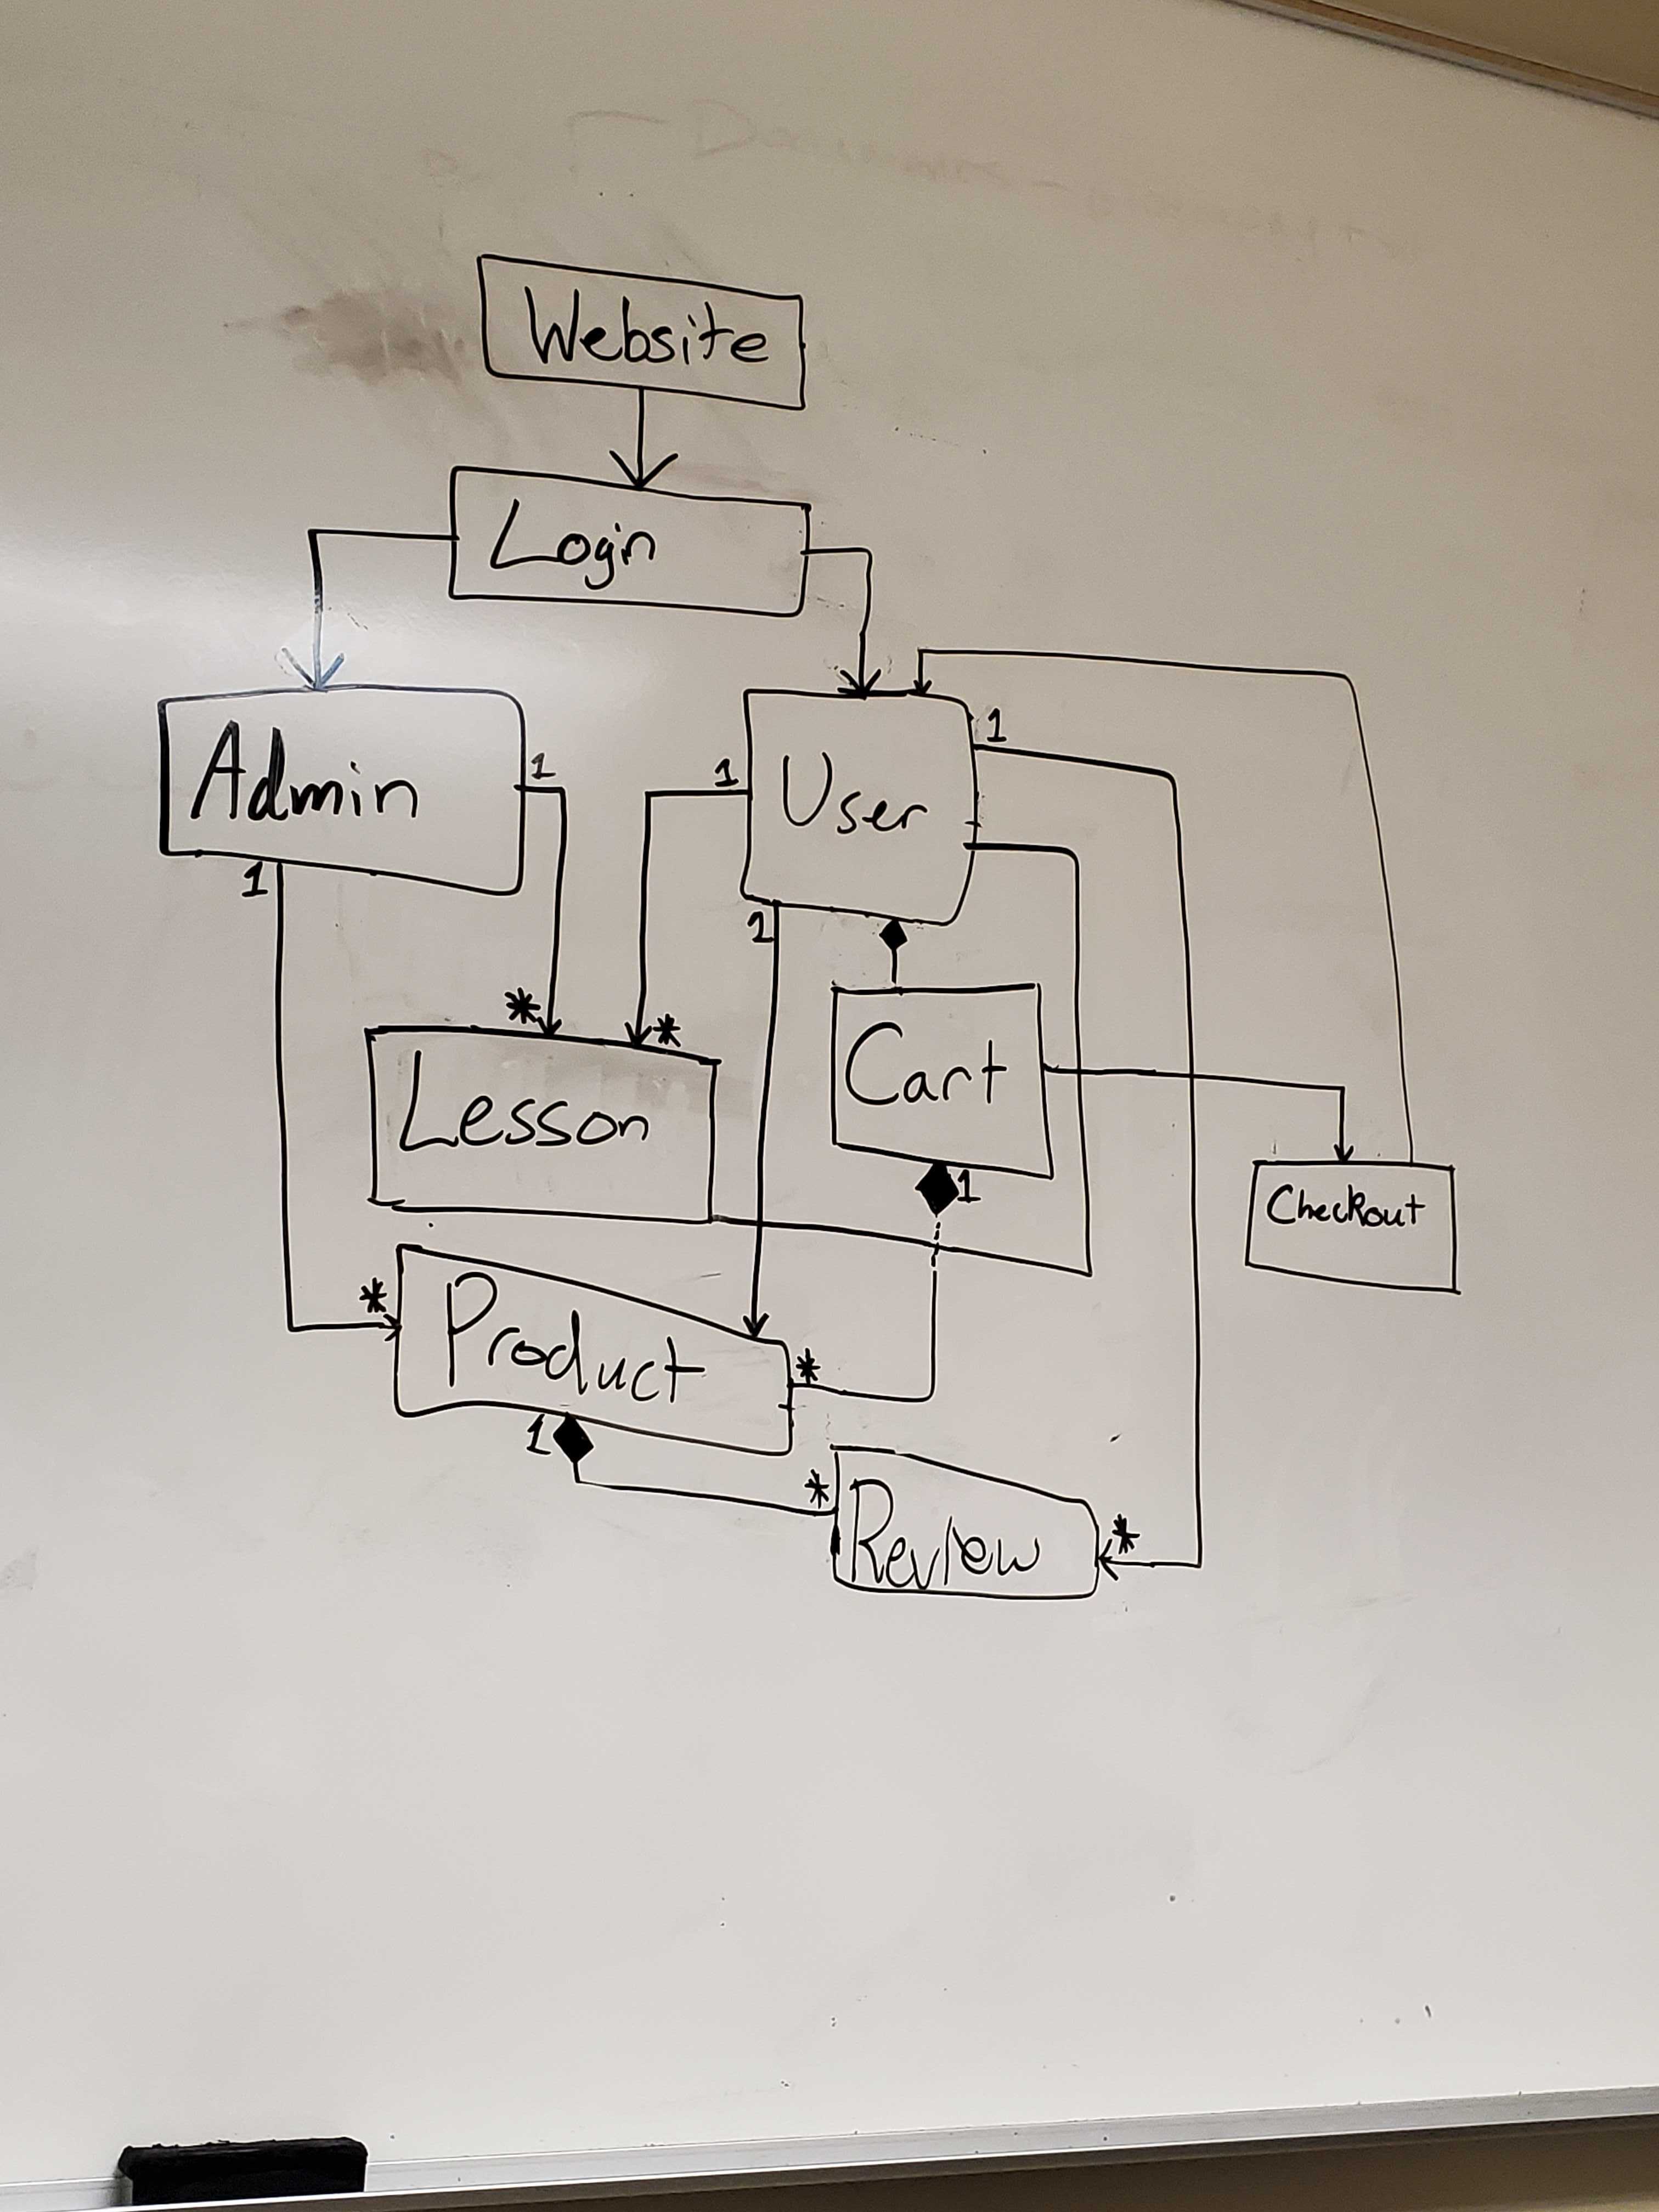 Website
Login
Admin
1
1
User
1
1
1
*
*
Lesson
Cart
1
Checkout
*
Product
*
1
*
Review
*